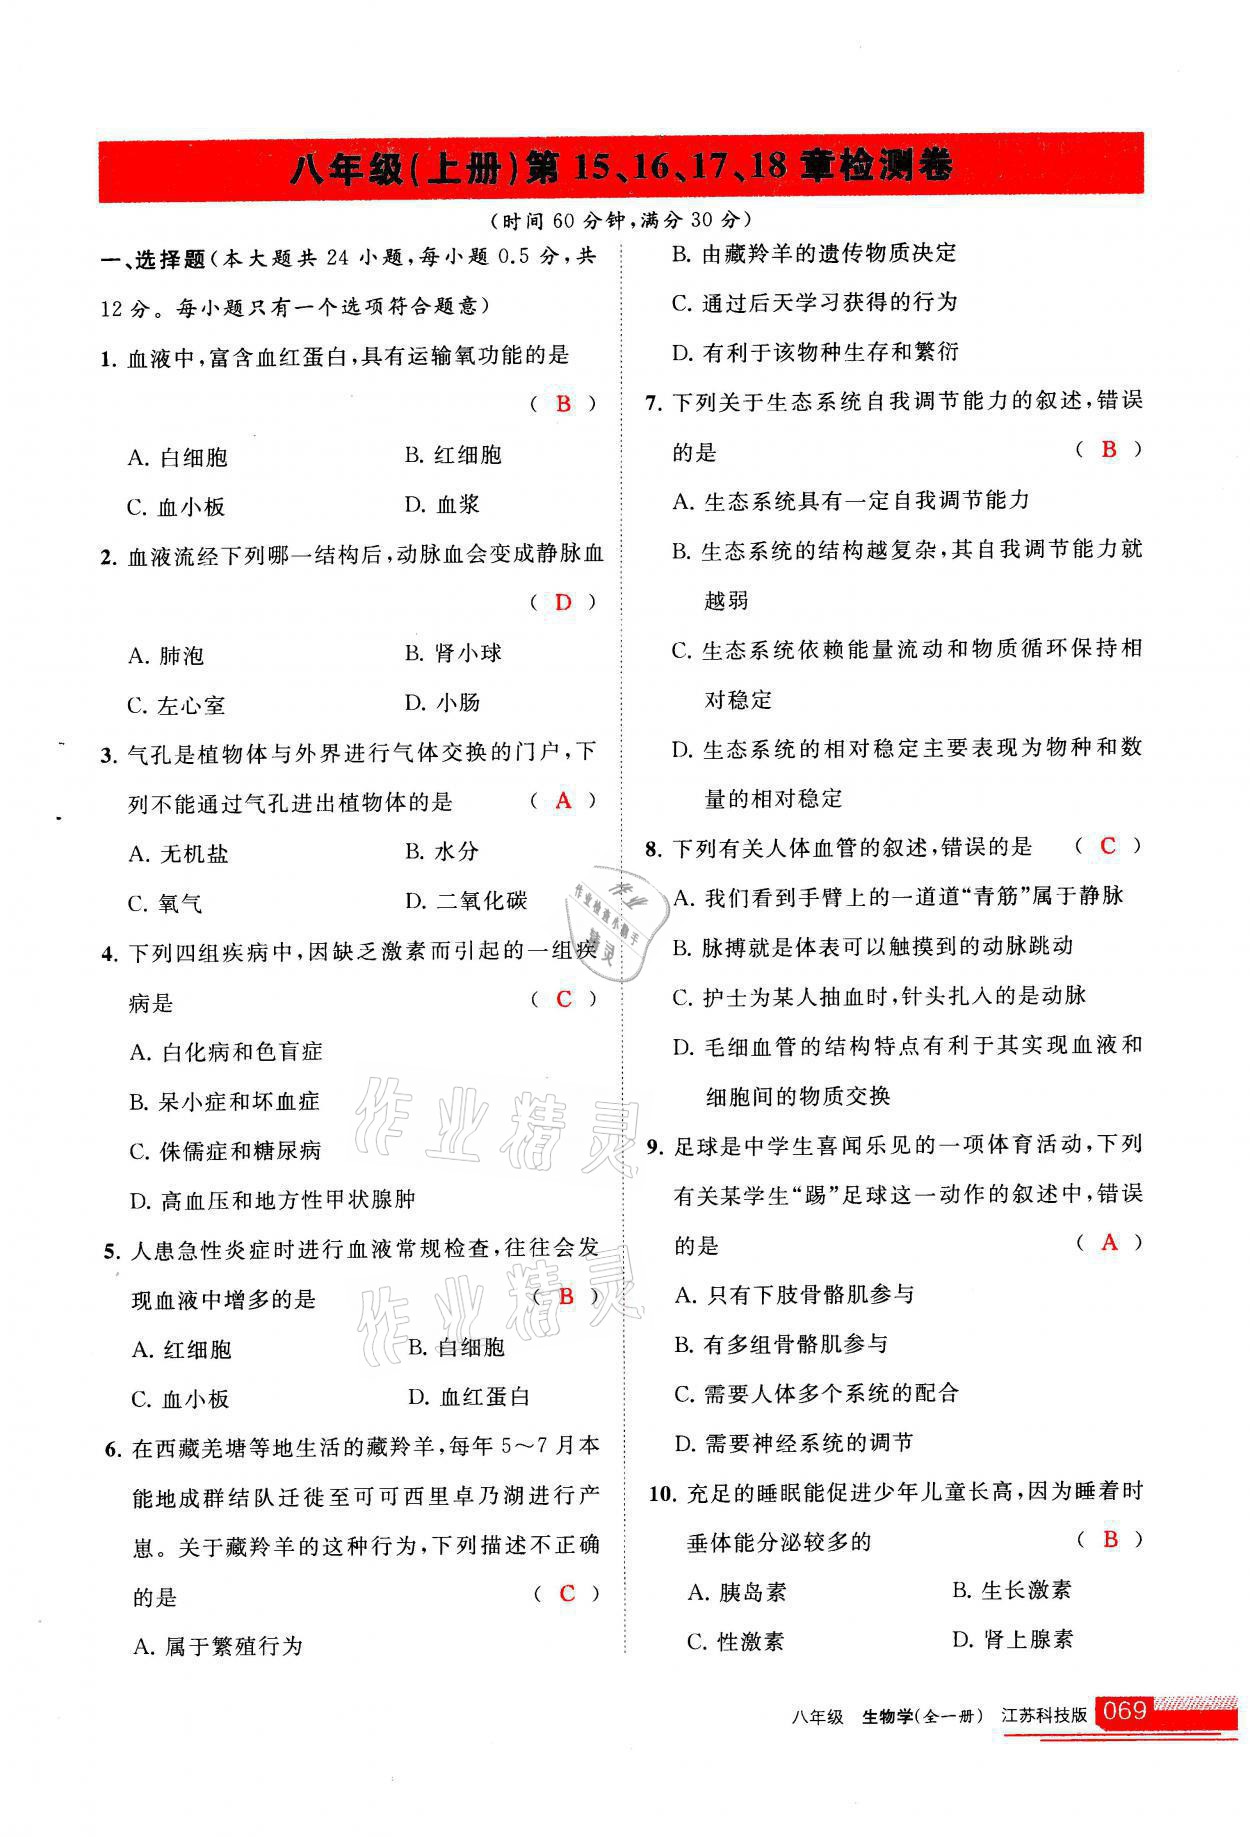 八年级(上册)第 15、16、17、18 章检测卷
(时间60分钟,满分30分)
一、选择题(本大题共24小题,每小题0.5分,共
12分。每小题只有一个选项符合题意)
1. 血液中,富含血红蛋白,具有运输氧功能的是
( B )
A. 白细胞 B. 红细胞
C. 血小板 D. 血浆
2. 血液流经下列哪一结构后,动脉血会变成静脉血
( D )
A. 肺泡 B. 肾小球
C. 左心室 D. 小肠
3. 气孔是植物体与外界进行气体交换的门户,下
列不能通过气孔进出植物体的是 ( A )
A. 无机盐 B. 水分
C. 氧气 D. 二氧化碳
4. 下列四组疾病中,因缺乏激素而引起的一组疾
病是 ( C )
A. 白化病和色盲症
B. 呆小症和坏血症
C. 侏儒症和糖尿病
D. 高血压和地方性甲状腺肿
5. 人患急性炎症时进行血液常规检查,往往会发
现血液中增多的是 ( B )
A. 红细胞 B. 白细胞
C. 血小板 D. 血红蛋白
6. 在西藏羌塘等地生活的藏羚羊,每年5~7月本
能地成群结队迁徙至可可西里卓乃湖进行产
崽。关于藏羚羊的这种行为,下列描述不正确
的是 ( C )
A. 属于繁殖行为
B. 由藏羚羊的遗传物质决定
C. 通过后天学习获得的行为
D. 有利于该物种生存和繁衍
7. 下列关于生态系统自我调节能力的叙述,错误
的是 ( B )
A. 生态系统具有一定自我调节能力
B. 生态系统的结构越复杂,其自我调节能力就
越弱
C. 生态系统依赖能量流动和物质循环保持相
对稳定
D. 生态系统的相对稳定主要表现为物种和数
量的相对稳定
8. 下列有关人体血管的叙述,错误的是 ( C )
A. 我们看到手臂上的一道道“青筋”属于静脉
B. 脉搏就是体表可以触摸到的动脉跳动
C. 护士为某人抽血时,针头扎入的是动脉
D. 毛细血管的结构特点有利于其实现血液和
细胞间的物质交换
9. 足球是中学生喜闻乐见的一项体育活动,下列
有关某学生“踢”足球这一动作的叙述中,错误
的是 ( A )
A. 只有下肢骨骼肌参与
B. 有多组骨骼肌参与
C. 需要人体多个系统的配合
D. 需要神经系统的调节
10. 充足的睡眠能促进少年儿童长高,因为睡着时
垂体能分泌较多的 ( B )
A. 胰岛素 B. 生长激素
C. 性激素 D. 肾上腺素
作业
作业检查小助手
精灵
作业精灵
作业精灵
八年级 生物学(全一册) 江苏科技版 069